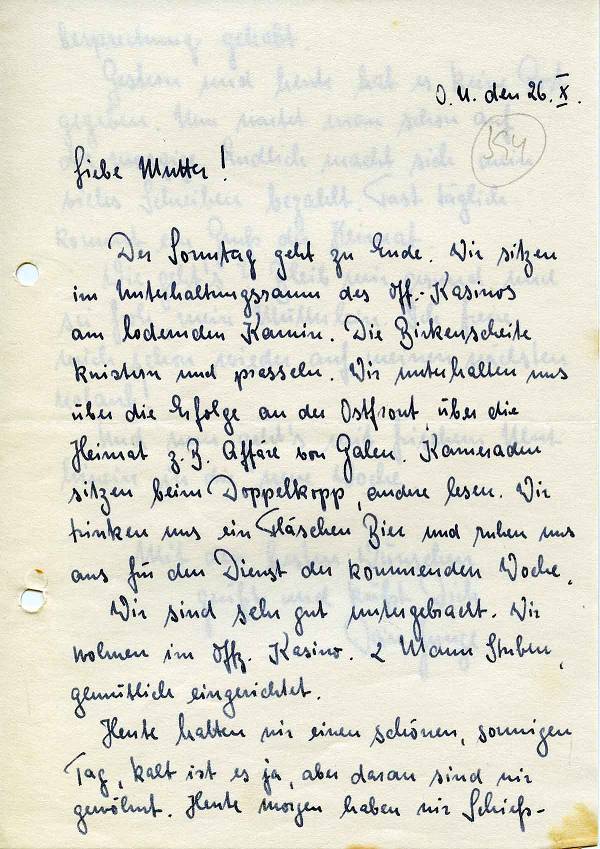 O.U. den 26. X.
354
Liebe Mutter!
Der Sonntag geht zu Ende. Wir sitzen
im Unterhaltungsraum des Off.-Kasinos
am lodernden Kamin. Die Birkenscheite
knistern und prasseln. Wir unterhalten uns
über die Erfolge an der Ostfront über die
Heimat z.B. Affäre von Galen. Kameraden
sitzen beim Doppelkopp, andere lesen. Wir
trinken uns ein Fläschen Bier und ruhen uns
aus für den Dienst der kommenden Woche.
Wir sind sehr gut untergebracht. Wir
wohnen im Offz. Kasino. 2 Mann Stuben,
gemütlich eingerichtet.
Heute hatten wir einen schönen, sonnigen
Tag, kalt ist es ja, aber daran sind wir
gewöhnt. Heute morgen haben wir Schieß-